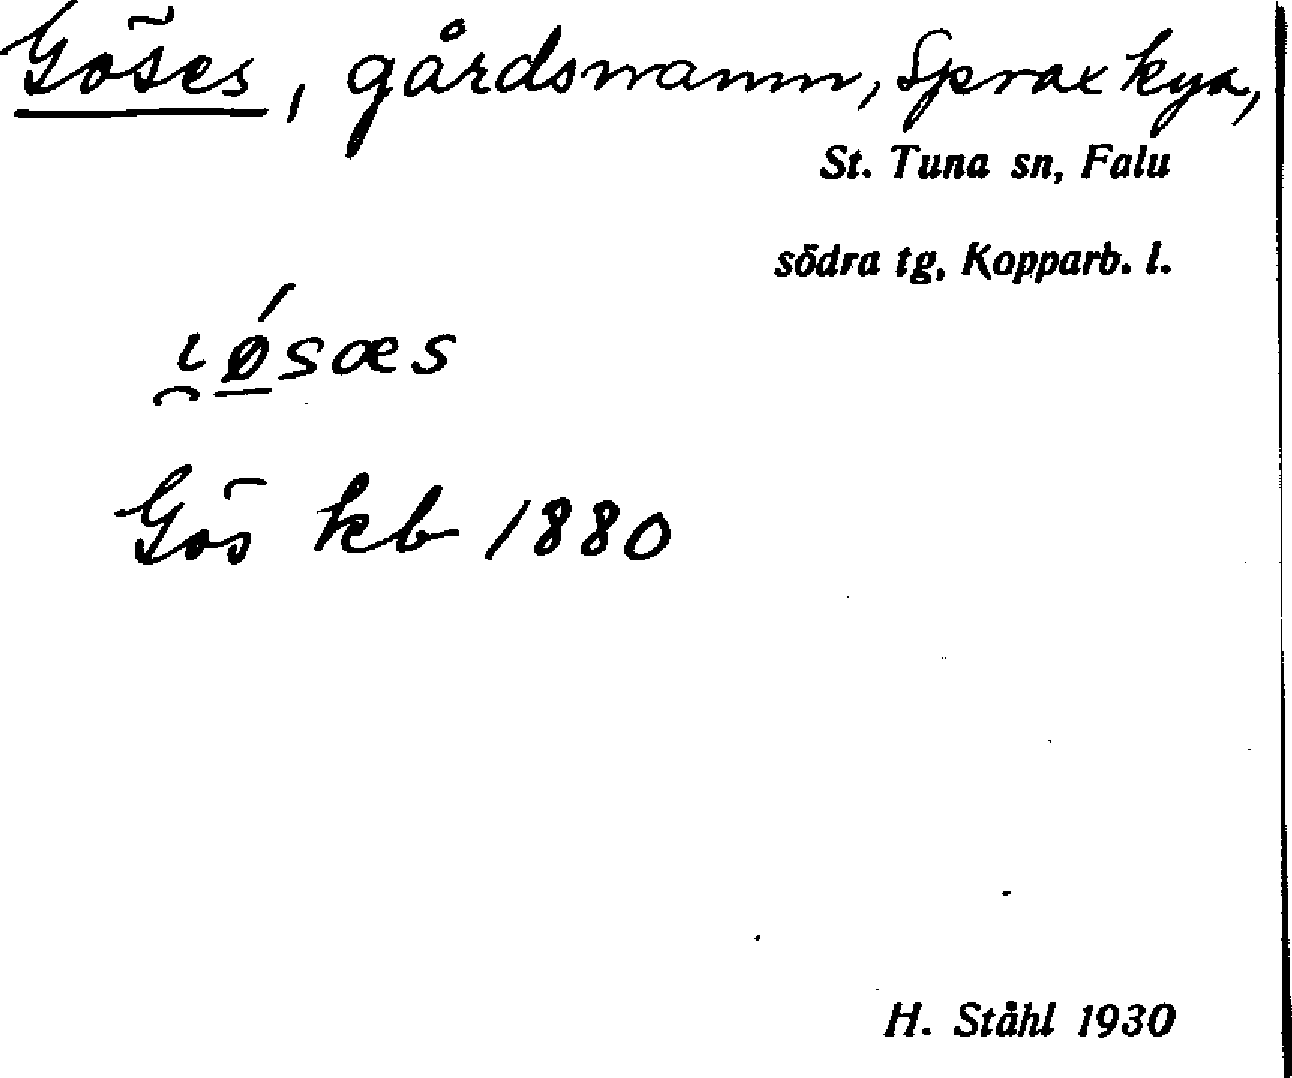 Göses, gårdsnamn, Sprax kya,
St. Tuna sn, Falu
södra tg, Kopparb. l.
i̯ǿ̱sæs
Gös kb 1880
H. Ståhl 1930